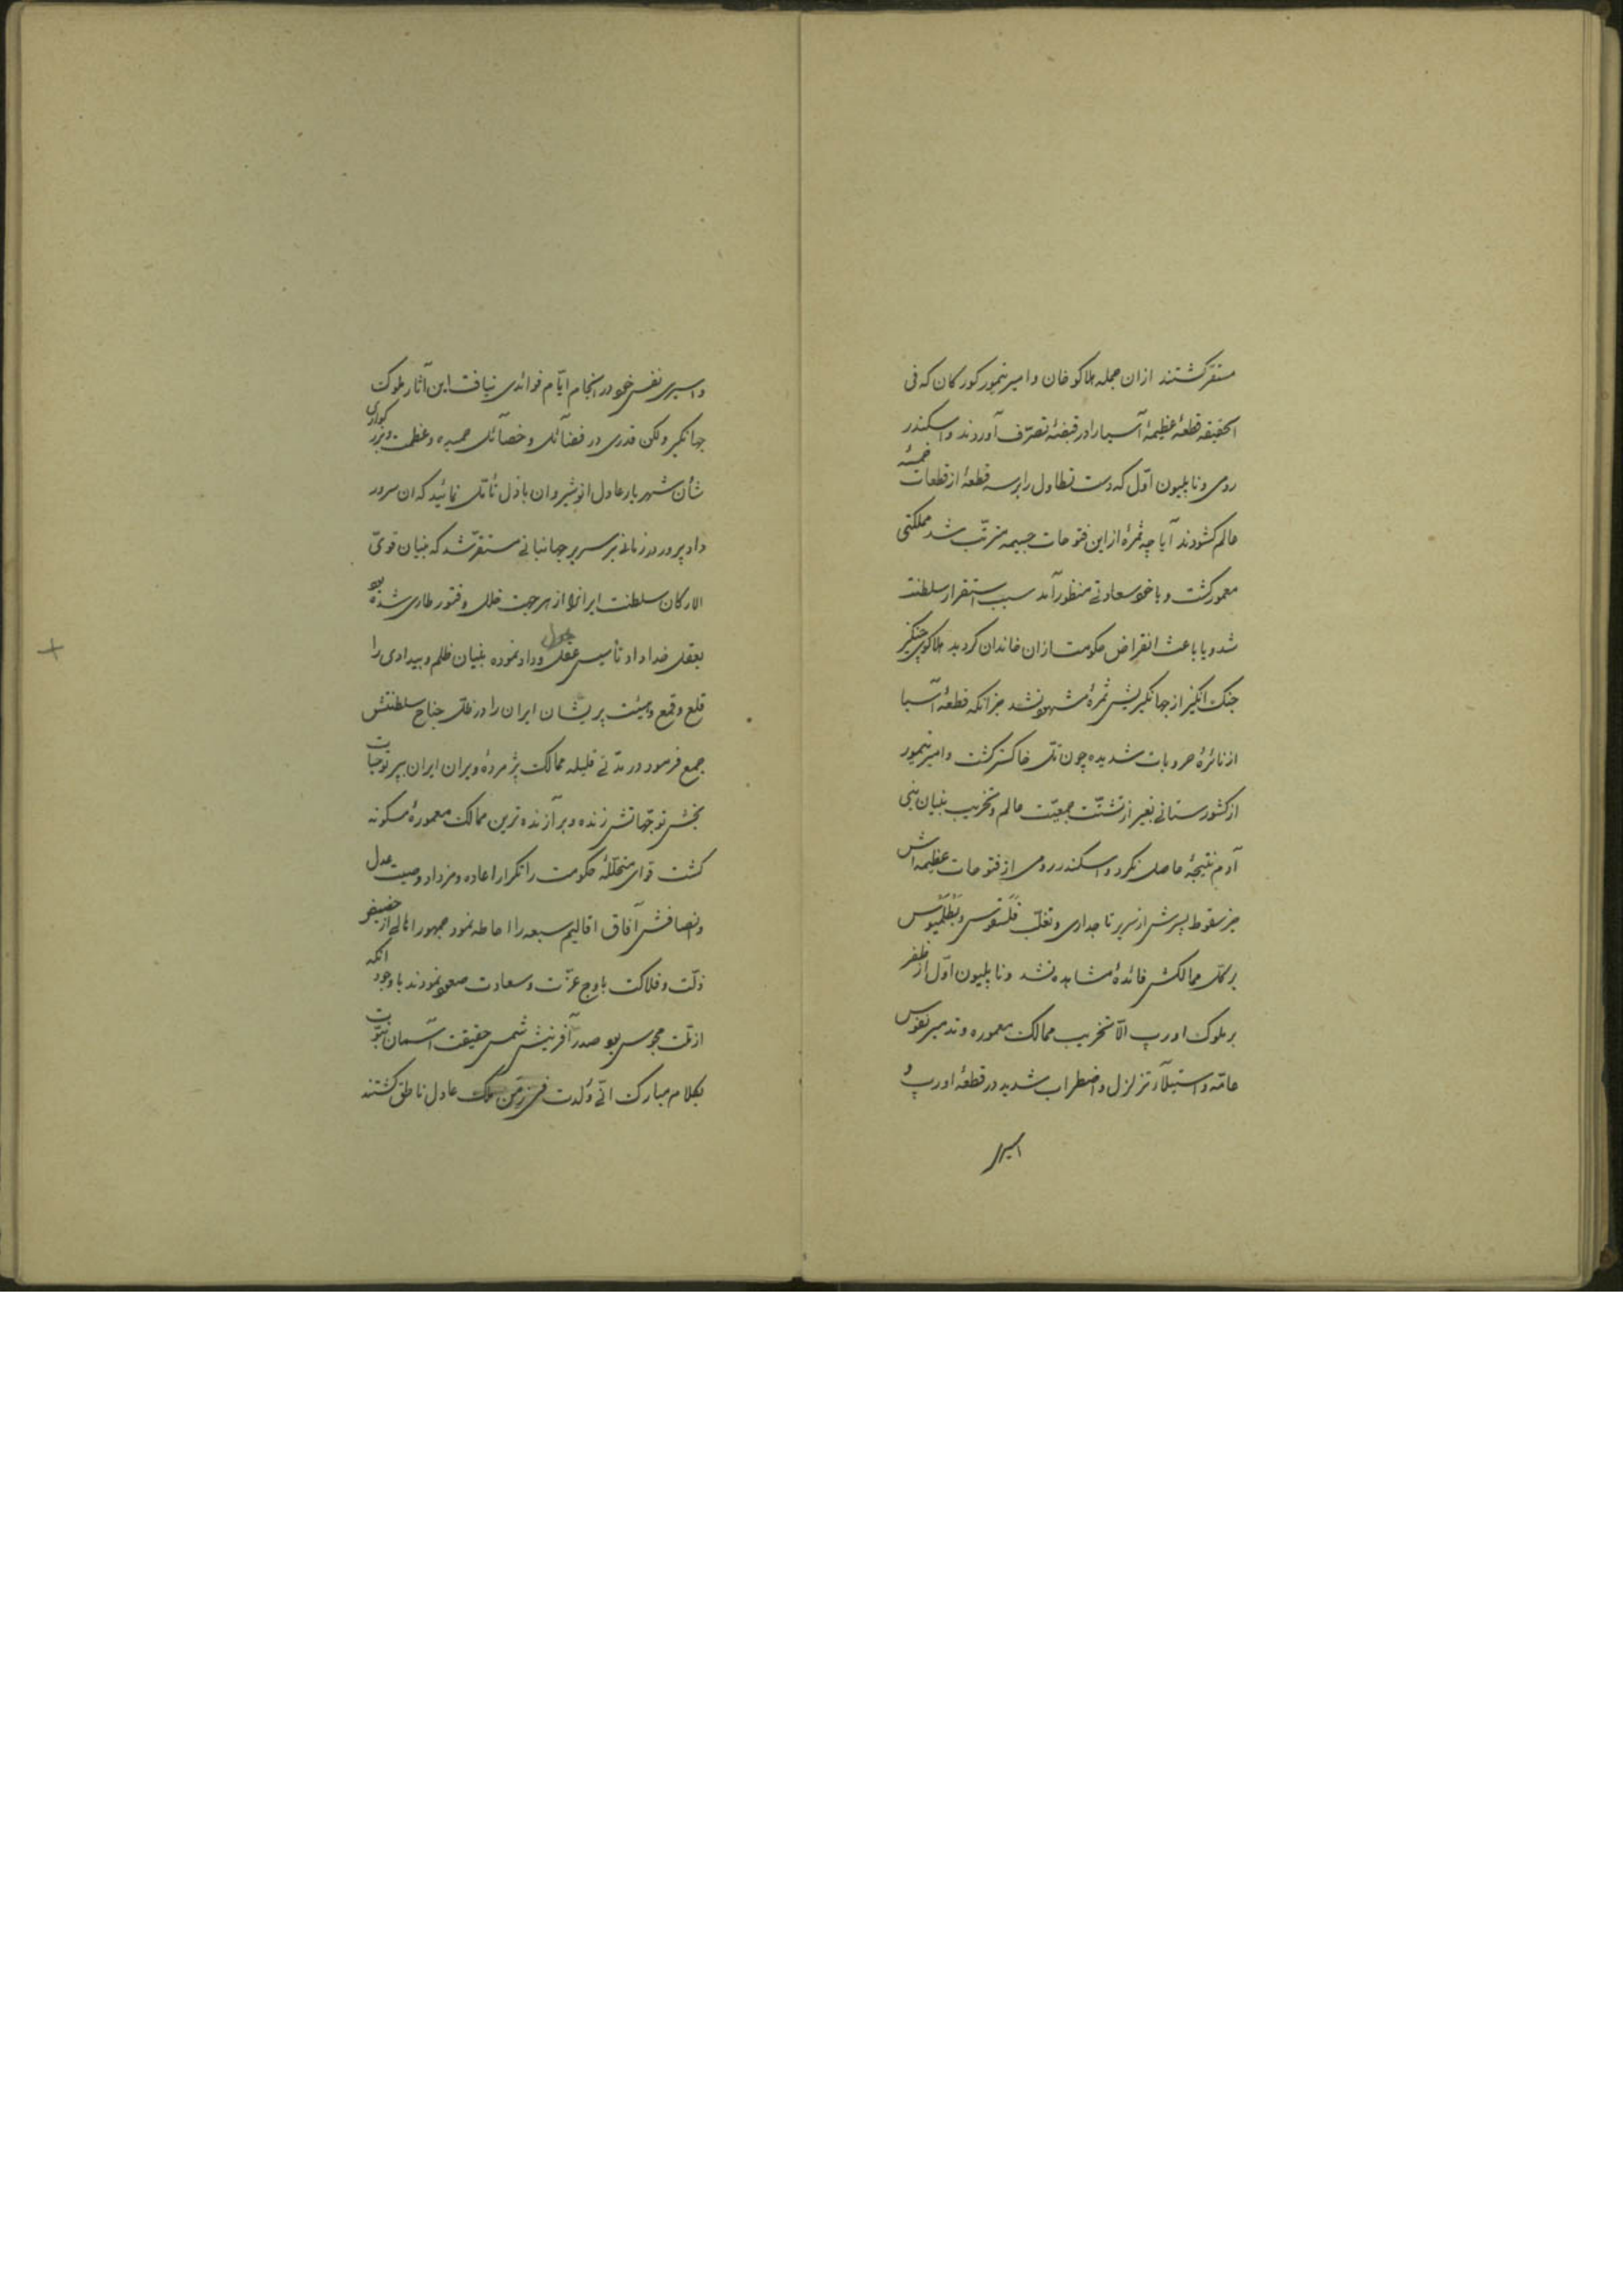 مستقر گشتند ازان جمله هلاکو خان و امیر تیمور کورکان که فی
الحقیقه قطعهٔ عظیمهٔ آسیا را در قبضهٔ تصرّف آوردند و اسکندر
رومی و ناپلیون اوّل که دست تطاول را بر سه قطعهٔ از قطعات خمسهٔ
عالم کشودند آیا چه ثمرهٔ از این فتوحات جسیمه مترتّب شد مملکتی
معمور کشت و یا خود سعادتی منظور آمد سبب استقرار سلطنت
شد و یا باعث انقراض حکومت ازان خاندان کردید هلاکوی چنکیز
جنک انکیز از جهانکیریش ثمرهٔ مشهود نشد جز انکه قطعهٔ آسیا
از نائرهٔ حروبات شدیده چون تلّ خاکستر کشت و امیر تیمور
از کشورستانی بغیر از تشتّت جمعیّت عالم و تخریب بنیان بنی
آدم نتیجهٔ حاصل نکرد و اسکندر رومی از فتوحات عظیمه اش
جز سقوط پسرش از سریر تاجداری و تغلّب فَلسقوس و بَطْلَمیوس
بر کلّ ممالکش فائدهٔ مشاهده نشد و ناپلیون اوّل از ظفر
بر ملوک اورپ الّا تخریب ممالک معموره و تدمیر نفوس
عامّه و استیلآء تزلزل و اضطراب شدید در قطعهٔ اورپ و
اسیری
و اسیری نفس خود در انجام ایّام فوائدی نیافت این آثار ملوک
جهانکیر ولکن قدری در فضآئل و خصآئل حمیده و عظمت و بزرکواری
شأن شهریار عادل انوشیروان باذل تأمّل نمائید که ان سرور
دادپرور در زمانی بر سریر جهانبانی مستقرّ شد که بنیان قویّ
الارکان سلطنت ایرانرا از هر جهت خلل و فتور طاری شده بود
بعقل خداداد تأسیس عدل و داد نموده بنیان ظلم و بیدادی را
قلع و قمع و هیئت پریشان ایران را در ظلّ جناح سلطنتش
جمع فرمود در مدّتی قلیله ممالک پژمردهٔ ویران ایران بپرتو حیات
بخش توجّهاتش زنده و برآزنده ترین ممالک معمورهٔ مسکونه
کشت قوای متحلّلهٔ حکومت را تکرار اعاده و مزداد و صیت عدل
و انصافش آفاق اقالیم سبعه را احاطه نمود جمهور اهالی از حضیض
ذلّت و فلاکت باوج عزّت و سعادت صعود نمودند با وجود انکه
از ملّت مجوس بود صدر آفرینش شمس حقیقت آسمان نبوّت
بکلام مبارک انّی وُلدت فی زَمَن ملک عادل ناطق کشتند